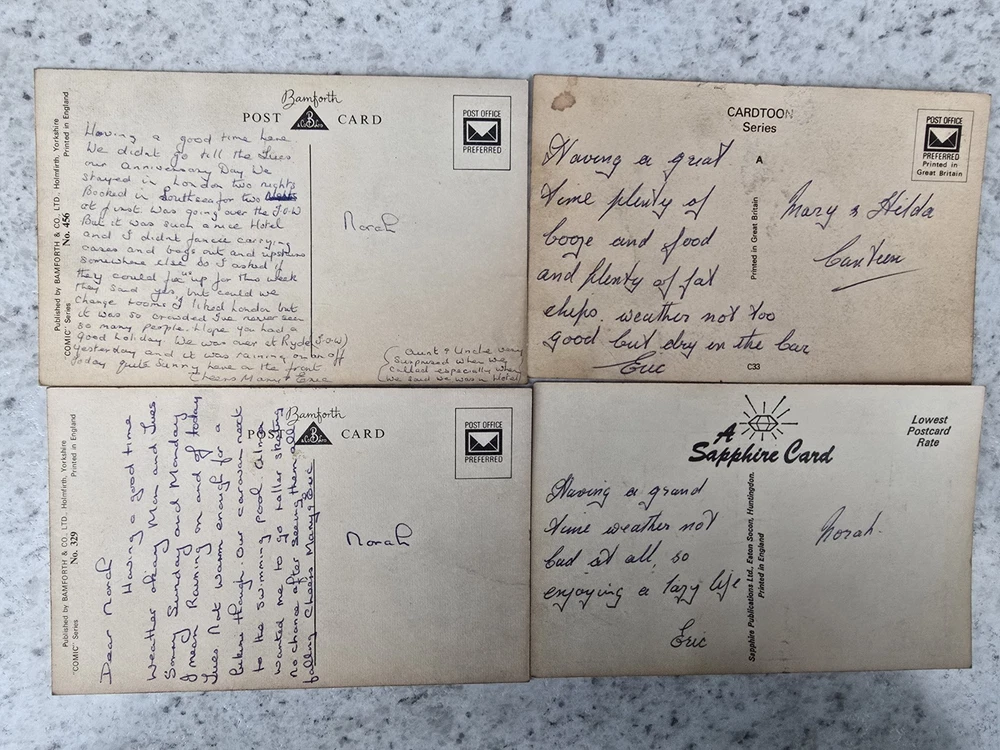 Published by BAMFORTH & CO. LTD., Holmfirth, Yorkshire
"COMIC" Series No. 456 Printed in England
Bamforth
POST CARD
POST OFFICE
PREFERRED
Having a good time here.
We didnt go till the Tues
our anniversary Day We
stayed in London two nights
Booked in Southsea for two
at first. Was going over the I.O.W
But it was such a nice Hotel
and I didnt fancie carrying
cases and bags out and upstairs
somewhere else so I asked if
they could fix us up for this week
they said yes but could we
change rooms I liked London but
it was so crowded I've never seen
so many people. Hope you had a
good holiday. We was over at Ryde (I-O-W)
yesterday and it was raining on an off
today quite sunny here on the front
Cheers Mary & Eric
(Aunt & Uncle very
surprised when we
called especially when
we said we was in Hotel)
Norah
CARDTOON
Series
POST OFFICE
PREFERRED
Printed in
Great Britain
A
Printed in Great Britain
Having a great
time plenty of
booze and food
and plenty of fat
chips. weather not too
good but dry in the bar
Eric
Mary & Hilda
Canteen
C33
Published by BAMFORTH & CO. LTD., Holmfirth, Yorkshire
"COMIC" Series No. 329 Printed in England
Bamforth
POST CARD
POST OFFICE
PREFERRED
Dear Norah
Having a good time
weather okay Mon and Tues
Sorry Sunday and Monday
I mean Raining on and off today
Tues Not warm enough for a
bikini though. Our caravan next
to the swimming pool.
wanted me to go roller skating
no chance after seeing them all
falling Cheers Mary & Eric
Norah
A
Sapphire Card
Lowest
Postcard
Rate
Sapphire Publications Ltd., Eaton Socon, Huntingdon.
Printed in England
Having a grand
time weather not
bad at all, so
enjoying a lazy life
Eric
Norah.